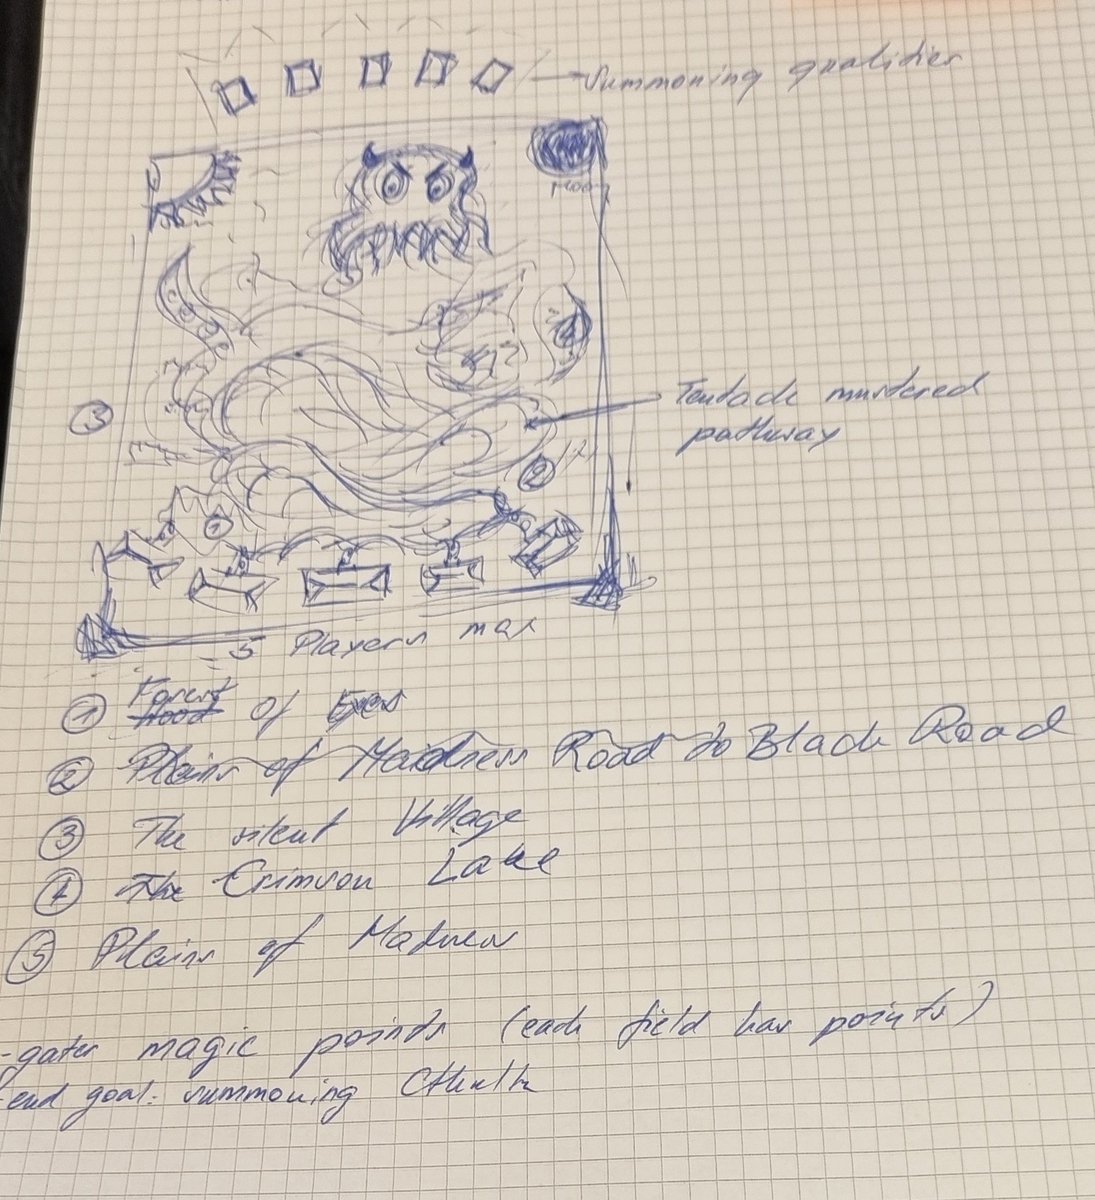 Summoning qualities
Moon
Tentacle murdered
pathway
3
2
1
5 Players max
1 Forest
Wood of Eyes
2 Plains of Madness Road to Black Road
3 The silent Village
4 The Crimson Lake
5 Plains of Madness
-gater magic points (each field has points)
-end goal: summoning Cthulh